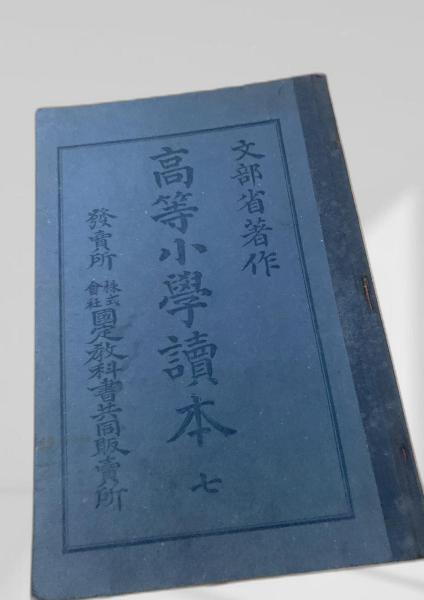 文部省著作
高等小學讀本 七
發賣所 株式會社 國定教科書共同販賣所